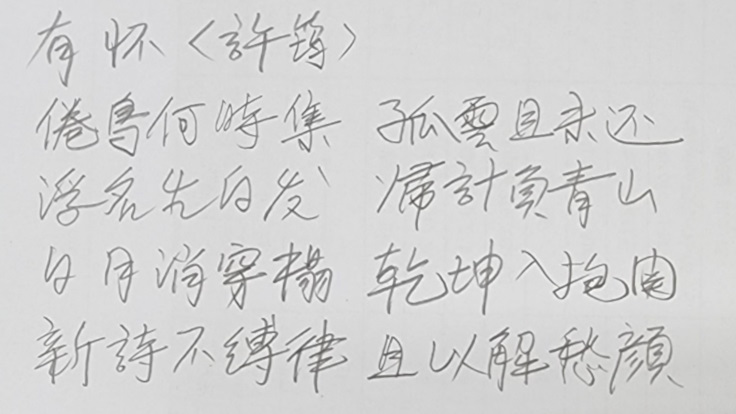 有怀〈許筠〉
倦鳥何時集 孤雲且未还
浮名生白发 帰計負青山
日月消穿榻 乾坤入抱関
新詩不縛律 且以解愁顔